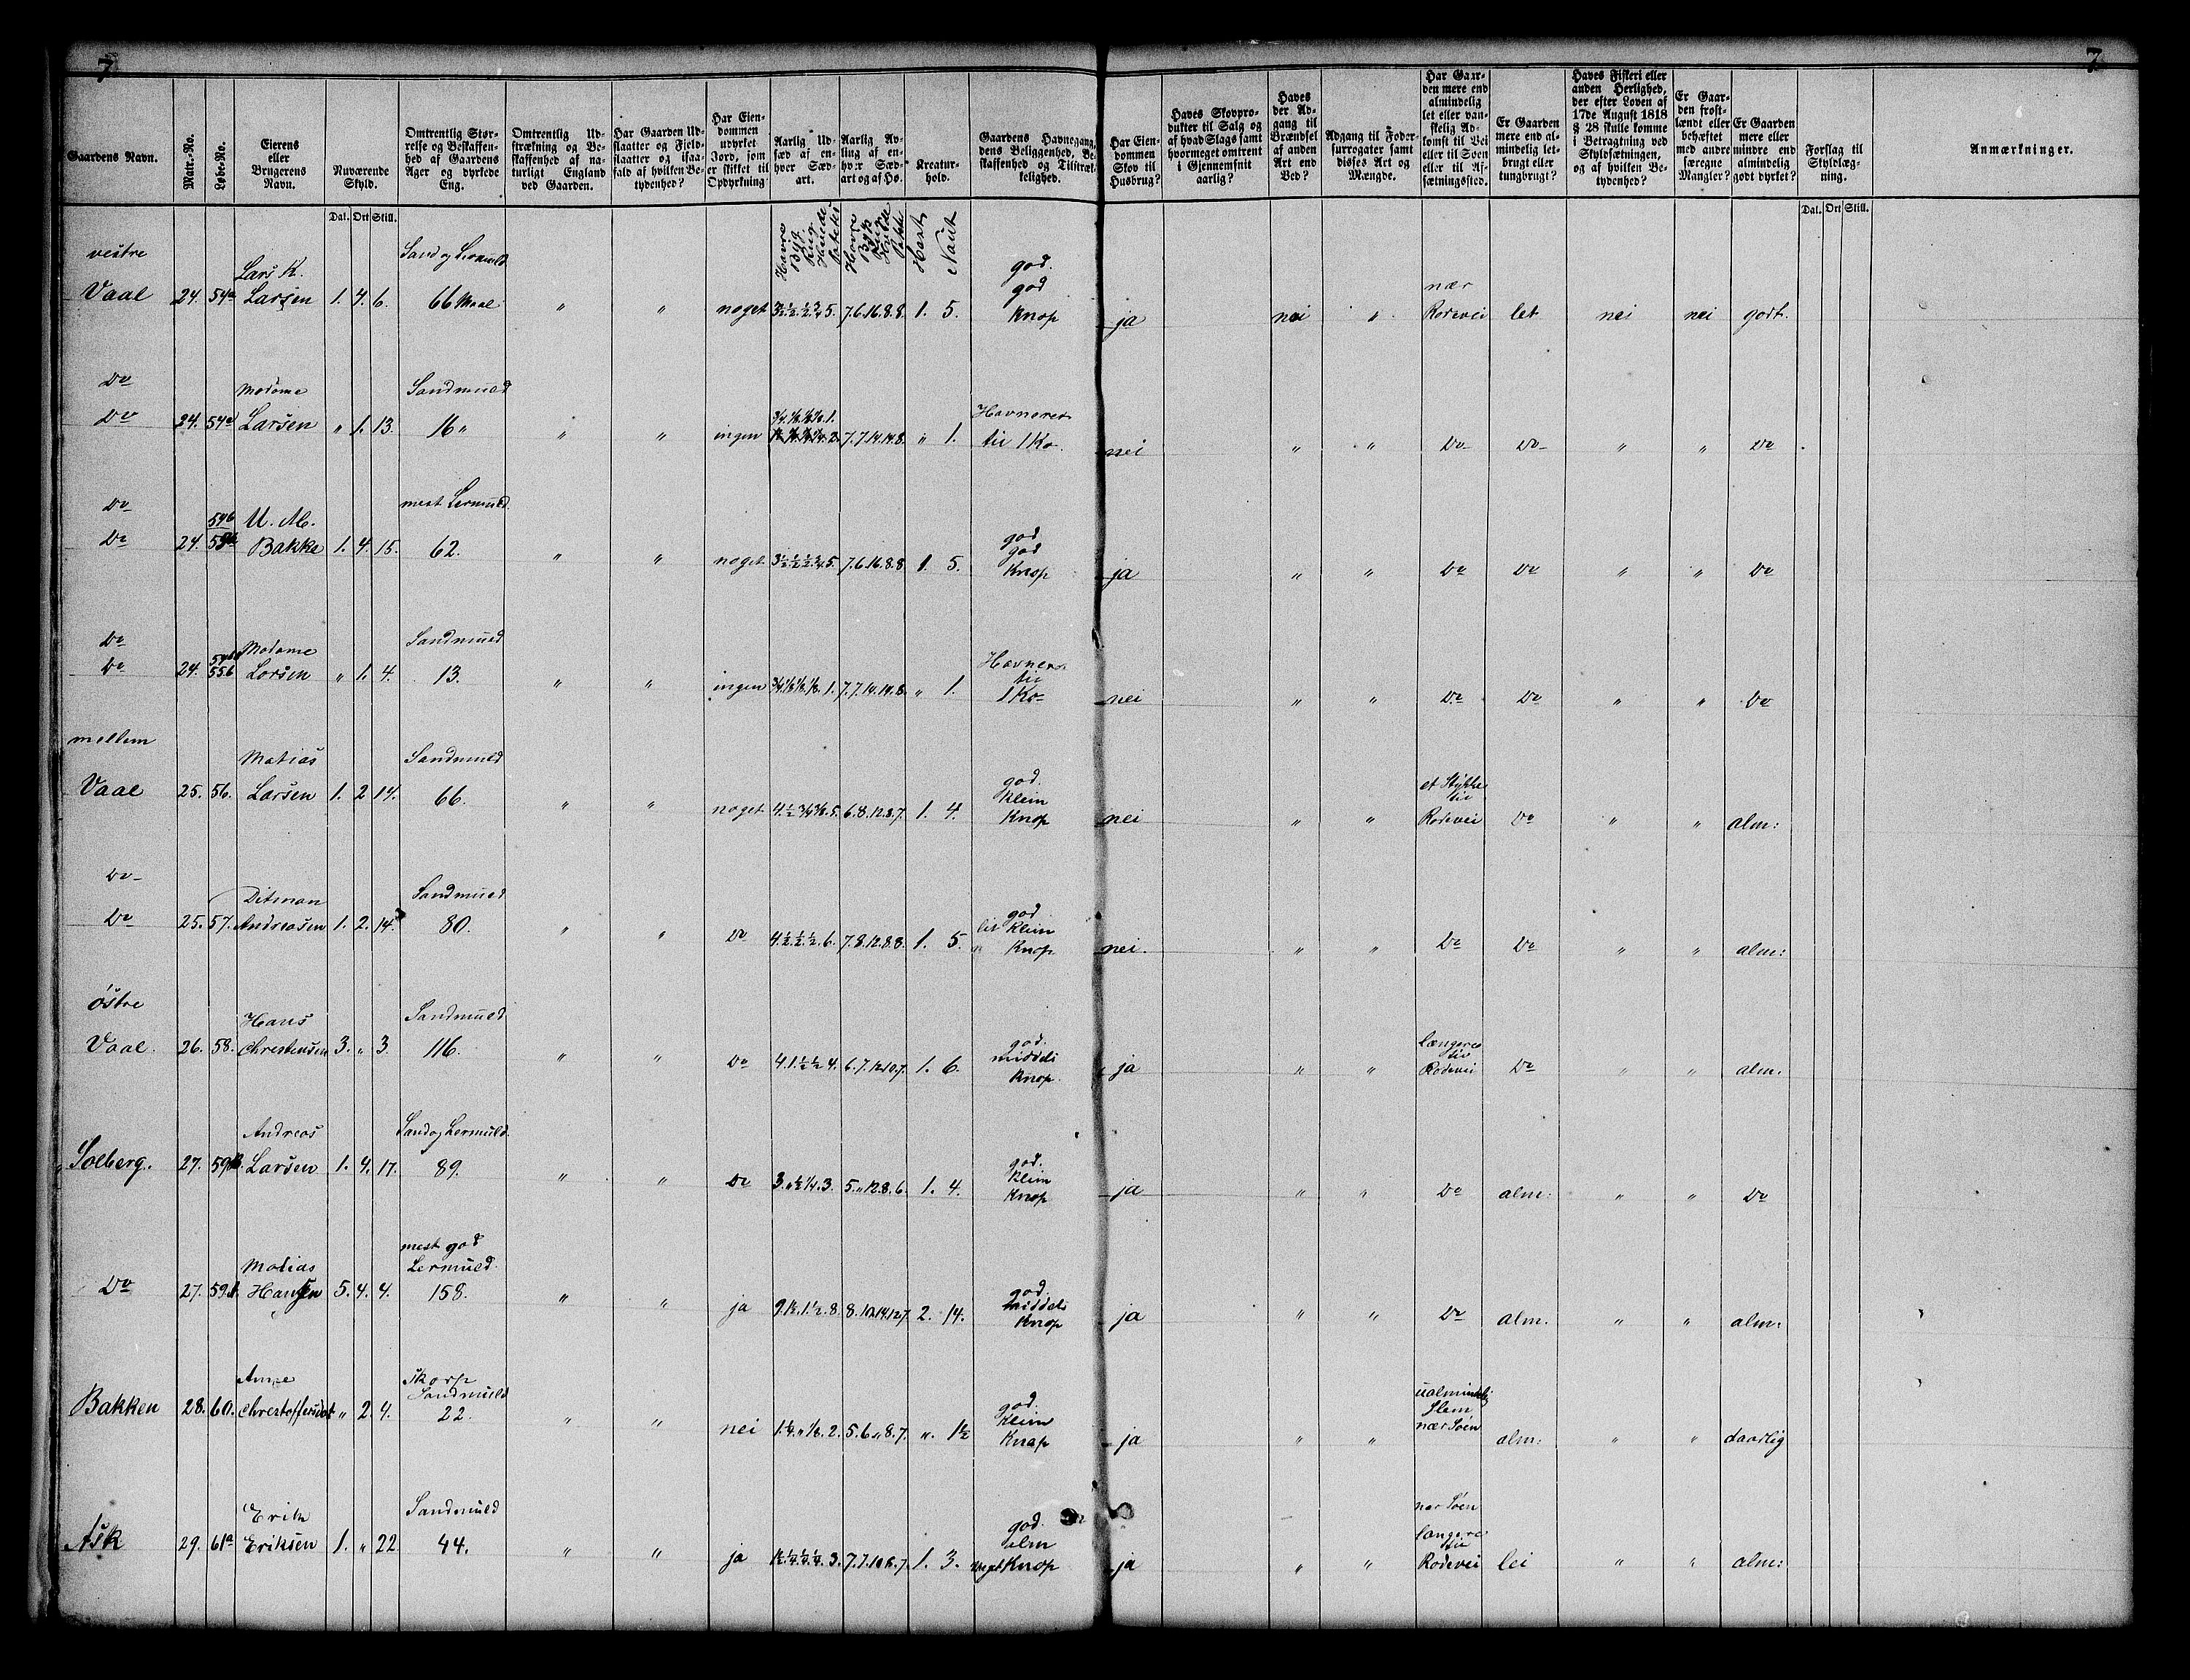 7 7
Gaardens Navn. Matr.-No. Løbe-No. Eierens eller Brugerens Navn. Nuværende Skyld. Omtrentlig Størrelse og Beskaffenhed af Gaardens Ager og dyrkede Eng. Omtrentlig Udstrækning og Beskaffenhed af naturligt England ved Gaarden. Har Gaarden Udslaatter og Fjeldslaatter og isaafald af hvilken Betydenhed? Har Eiendommen udyrket Jord, som er skikket til Opdyrkning? Aarlig Udsæd af enhver Sædart. Aarlig Avling af enhver Sædart og af Hø. Kreaturhold. Gaardens Havnegang, dens Beliggenhed, Beskaffenhed og Tilstrækkelighed. Har Eiendommen Skov til Husbrug? Haves Skovprodukter til Salg og af hvad Slags samt hvormeget omtrent i Gjennemsnit aarlig? Haves der Adgang til Brændsel af anden Art end Ved? Adgang til Fodersurrogater samt disses Art og Mængde. Har Gaarden mere end almindelig let eller vanskelig Adkomst til Vei eller til Søen eller til Afsætningssted. Er Gaarden mere end almindelig letbrugt eller tungbrugt? Haves Fiskeri eller anden Herlighed, der efter Loven af 17de August 1818 § 28 skulle komme i Betragtning ved Skyldsætningen, og af hvilken Betydenhed? Er Gaarden frostlændt eller behæftet med andre særegne Mangler? Er Gaarden mere eller mindre end almindelig godt dyrket? Forslag til Skyldlægning. Anmærkninger.
Dal. Ort Skill. Havre Byg Rug Poteter Havre Byg Hest Naut Dal. Ort Skill.
vestre Lars K. Sand og Lermuld god.
Vaal 24. 54a Larsen 1. 4. 6. 66 Maal " " noget 3½.½.½.¾.5. 7.6.16.8.8. 1. 5. god Knap ja nei " nær Rodevei let nei nei godt.
Do Madame Sandmuld
Do 24. 54d Larsen " 1. 13. 16 " " " ingen 7.7.14.14.8. " 1. Havneret til 1 Ko. nei " " Do Do " " Do
Do 54b U. M. mest Lermuld
Do 24. Bakke 1. 4. 15. 62. " " noget 3½.½.½.¾.5. 7.6.16.8.8 1. 5. god god Knap ja " " Do Do " " Do
Do Madame Sandmuld
Do 24. 55b Larsen " 1. 4. 13. " " ingen ¾.⅛.⅛.⅛.1. 7.7.14.14.8. " 1. Havneret til 1 Ko nei " " Do Do " " Do
mellem Matias Sandmuld
Vaal 25. 56. Larsen 1. 2 14. 66. " " noget 4.½.¾.⅜.5. 6.8.12.8.7. 1. 4. god. klein Knap nei " " et Stykke til Rodevei Do " " alm:
Do Ditman Sandmuld
Do 25. 57. Andreasen 1. 2. 14. 80. " " Do 4.½.½.½.6. 7.8.12.8.8. 1. 5. god klein Knap nei. " " Do Do " " alm:
østre Hans Sandmuld
Vaal. 26. 58. Christensen 3. " 3. 116. " " Do 4.1.½.½.4. 6.7.12.10.7. 1. 6. god. middels Knap. ja " " længere til Rodevei Do " " alm.
Andreas Sand og Lermuld
Solberg. 27. 59 Larsen 1. 4. 17. 89. " " Do 3."½.¼.3. 5."12.8.6. 1. 4. god. klein Knap ja " " Do alm. " " Do
Matias mest god Lermuld.
Do 27. 59 Hansen 5. 4. 4. 158. " " ja 9.1½.1.½.8. 8.10.14.12.7. 2. 14. god. middels Knap ja " " Do alm. " " alm:
Anne Skarp Sandmuld
Bakken 28. 60. Christoffersdat " 2. 4. 22. " " nei 1.¼."⅛.2. 5.6."8.7. ". 1½ god. klein Knap ja " " ualmindelig slem nær Søen alm: " " daarlig
Erik Sandmuld nær Søen
Ask 29. 61a Eriksen 1. " 22 44. " " ja 7.7.10.8.7. 1. 3. god. alm meget Knap ja " " længere til Rodevei let " " alm: